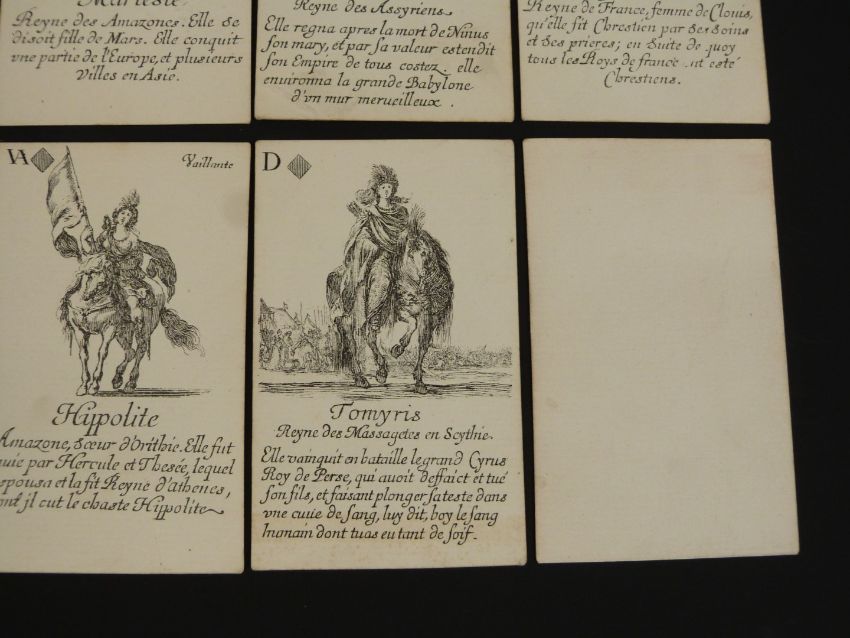 Reyne des Amazones. Elle se
disoit fille de Mars. Elle conquit
vne partie de l'Europe, et plusieurs
Villes en Asie.
Reyne des Assyriens
Elle regna apres la mort de Ninus
son mary, et par sa valeur estendit
son Empire de tous costez. elle
enuironna la grande Babylone
d'vn mur merueilleux.
Reyne de France, femme de Clouis,
qu'elle fit Chrestien par ses soins
et ses prieres; en suite de quoy
tous les Roys de france ont esté
Chrestiens.
Vaillante
Hippolite
Amazone, Sœur d'Orithie. Elle fut
par Hercule et Thesée, lequel
et la fit Reyne d'athenes,
il eut le chaste Hippolite
D
Tomyris
Reyne des Massagetes en Scythie.
Elle vainquit en bataille le grand Cyrus
Roy de Perse, qui auoit deffaict et tué
son fils, et faisant plonger sa teste dans
vne cuue de sang, luy dit, boy le sang
humain dont tu as eu tant de soif.